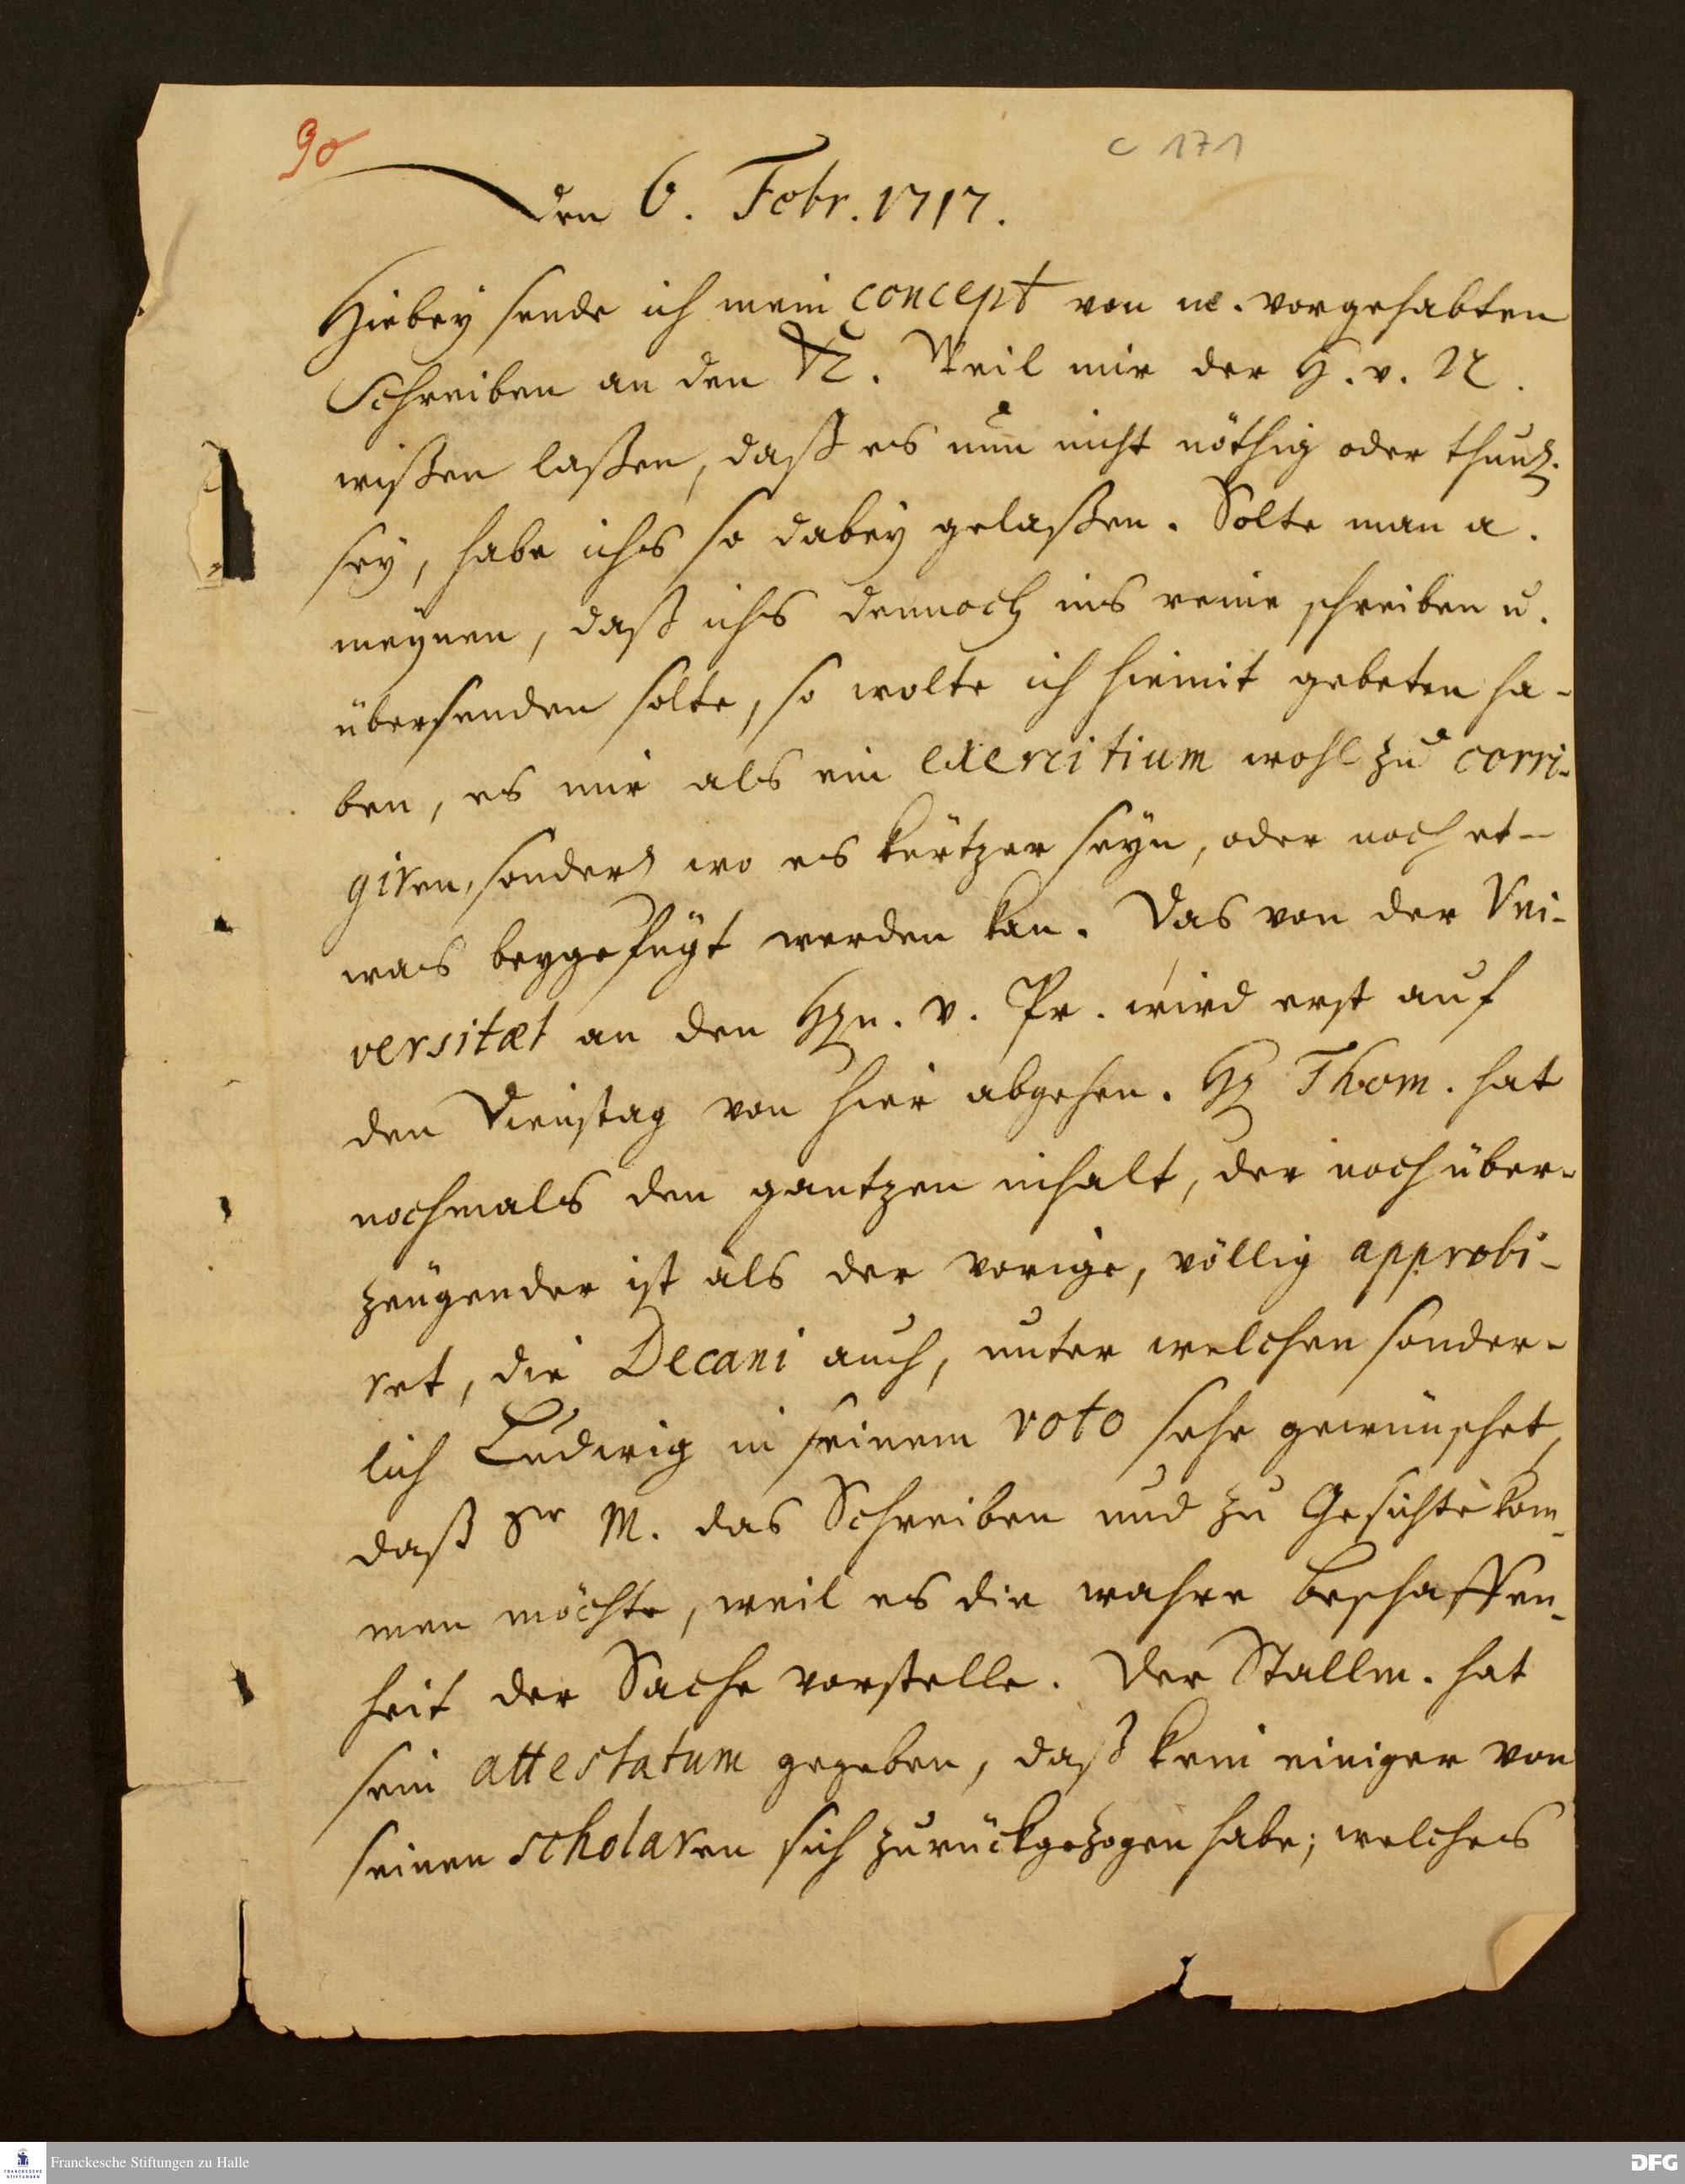 90
C 171
den 6. Febr. 1717.
Hiebey sende ich mein concept von m. vorgehabten
Schreiben an den K. Weil mir der H. v. N.
wißen laßen, daß es nun nicht nöthig oder thunl.
sey, habe ichs so dabey gelaßen. Solte man a.
meynen, daß ichs dennoch ins reine schreiben u.
übersenden solte, so wolte ich hiemit gebeten ha-
ben, es mir als ein exercitium wohl zu corri-
giren, sonderl wo es kürtzer seyn, oder noch et-
was beygefügt werden kan. Das von der Vni-
versitæt an den Hrn. v. Pr. wird erst auf
den Dienstag von hier abgehen. Hr Thom. hat
nochmals den gantzen inhalt, der noch über-
zeugender ist als der vorige, völlig approbi-
ret, die Decani auch, unter welchen sonder-
lich Ludwig in seinem voto sehr gewünschet,
daß Sr M. das Schreiben und zu Gesichte kom-
men möchte, weil es die wahre beschaffen-
heit der Sache vorstelle. Der Stallm. hat
sein attestatum gegeben, daß kein einiger von
seinen scholaren sich zurückgezogen habe; welches
Franckesche Stiftungen zu Halle
DFG